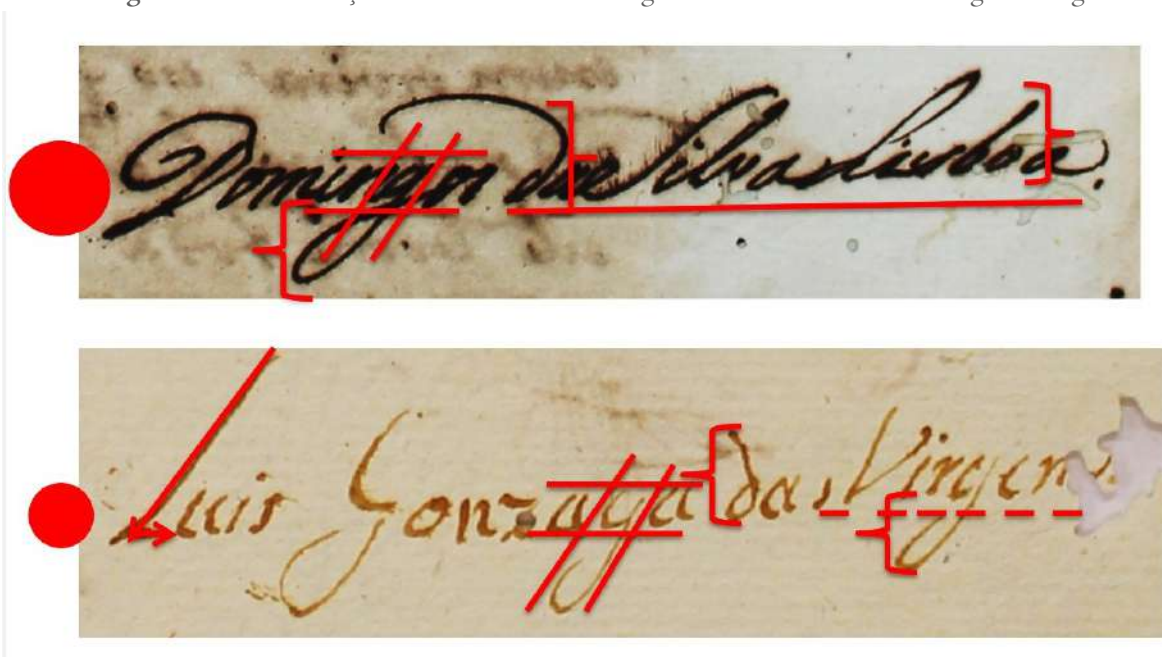 Domingos da Silva Lisboa.
Luis Gonzaga das Virgens